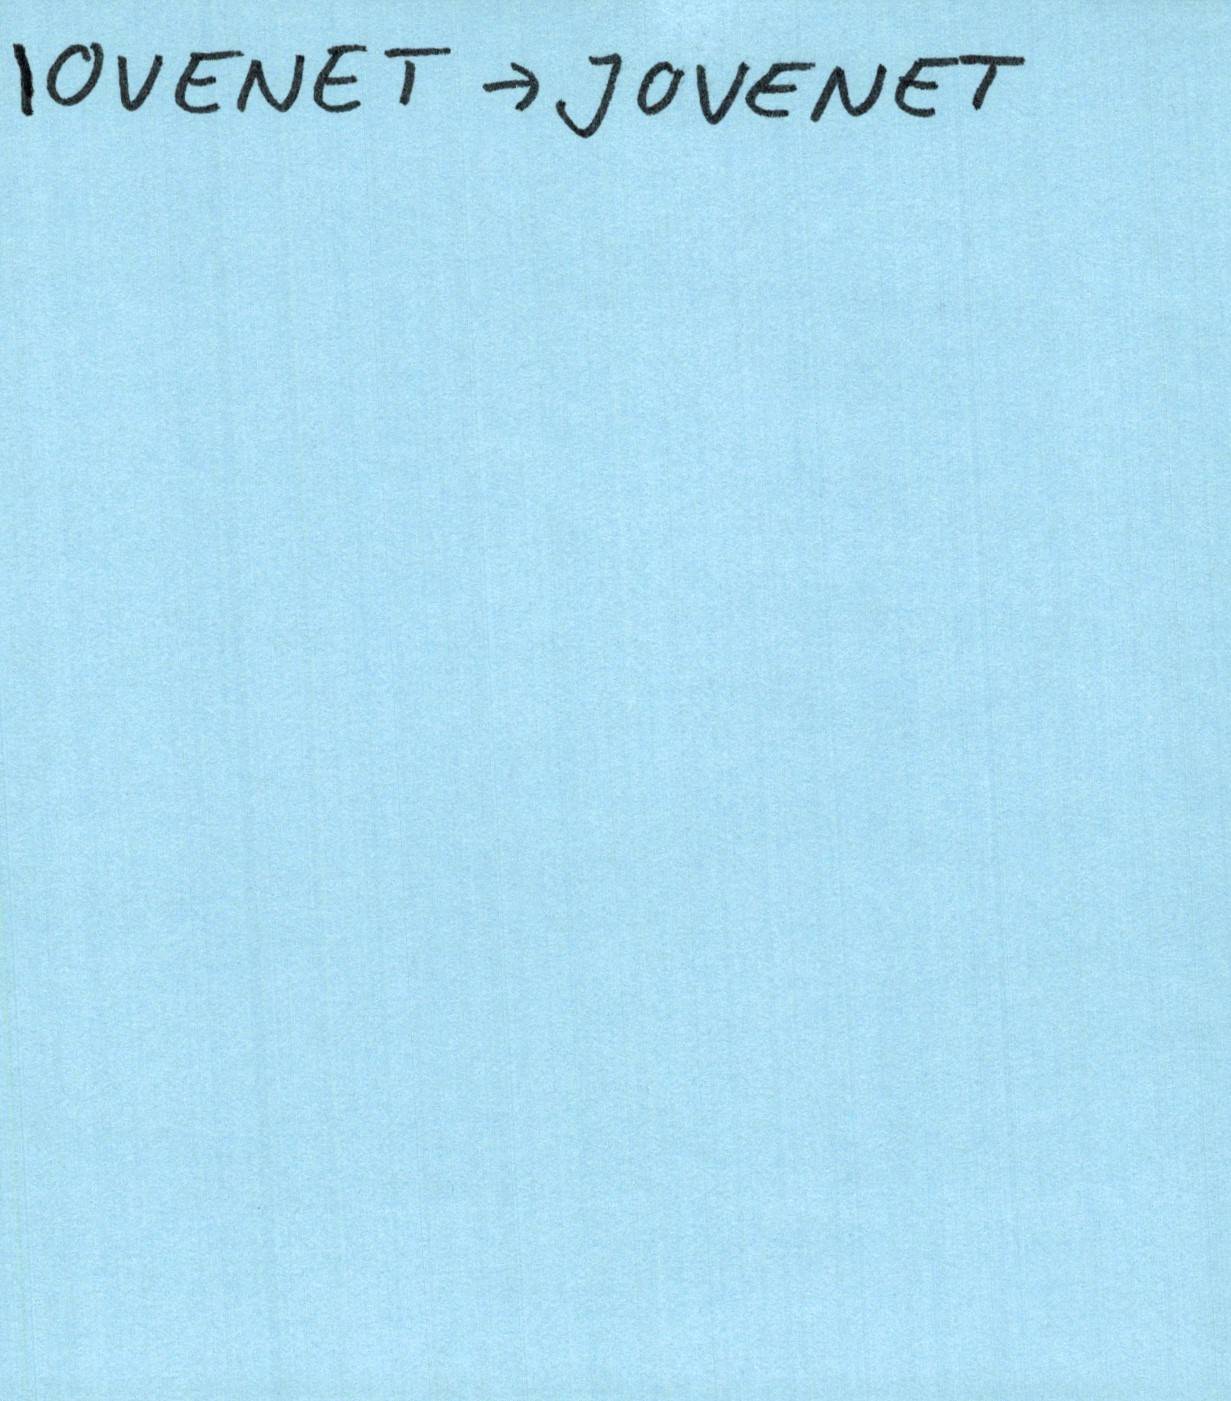 IOVENET → JOVENET